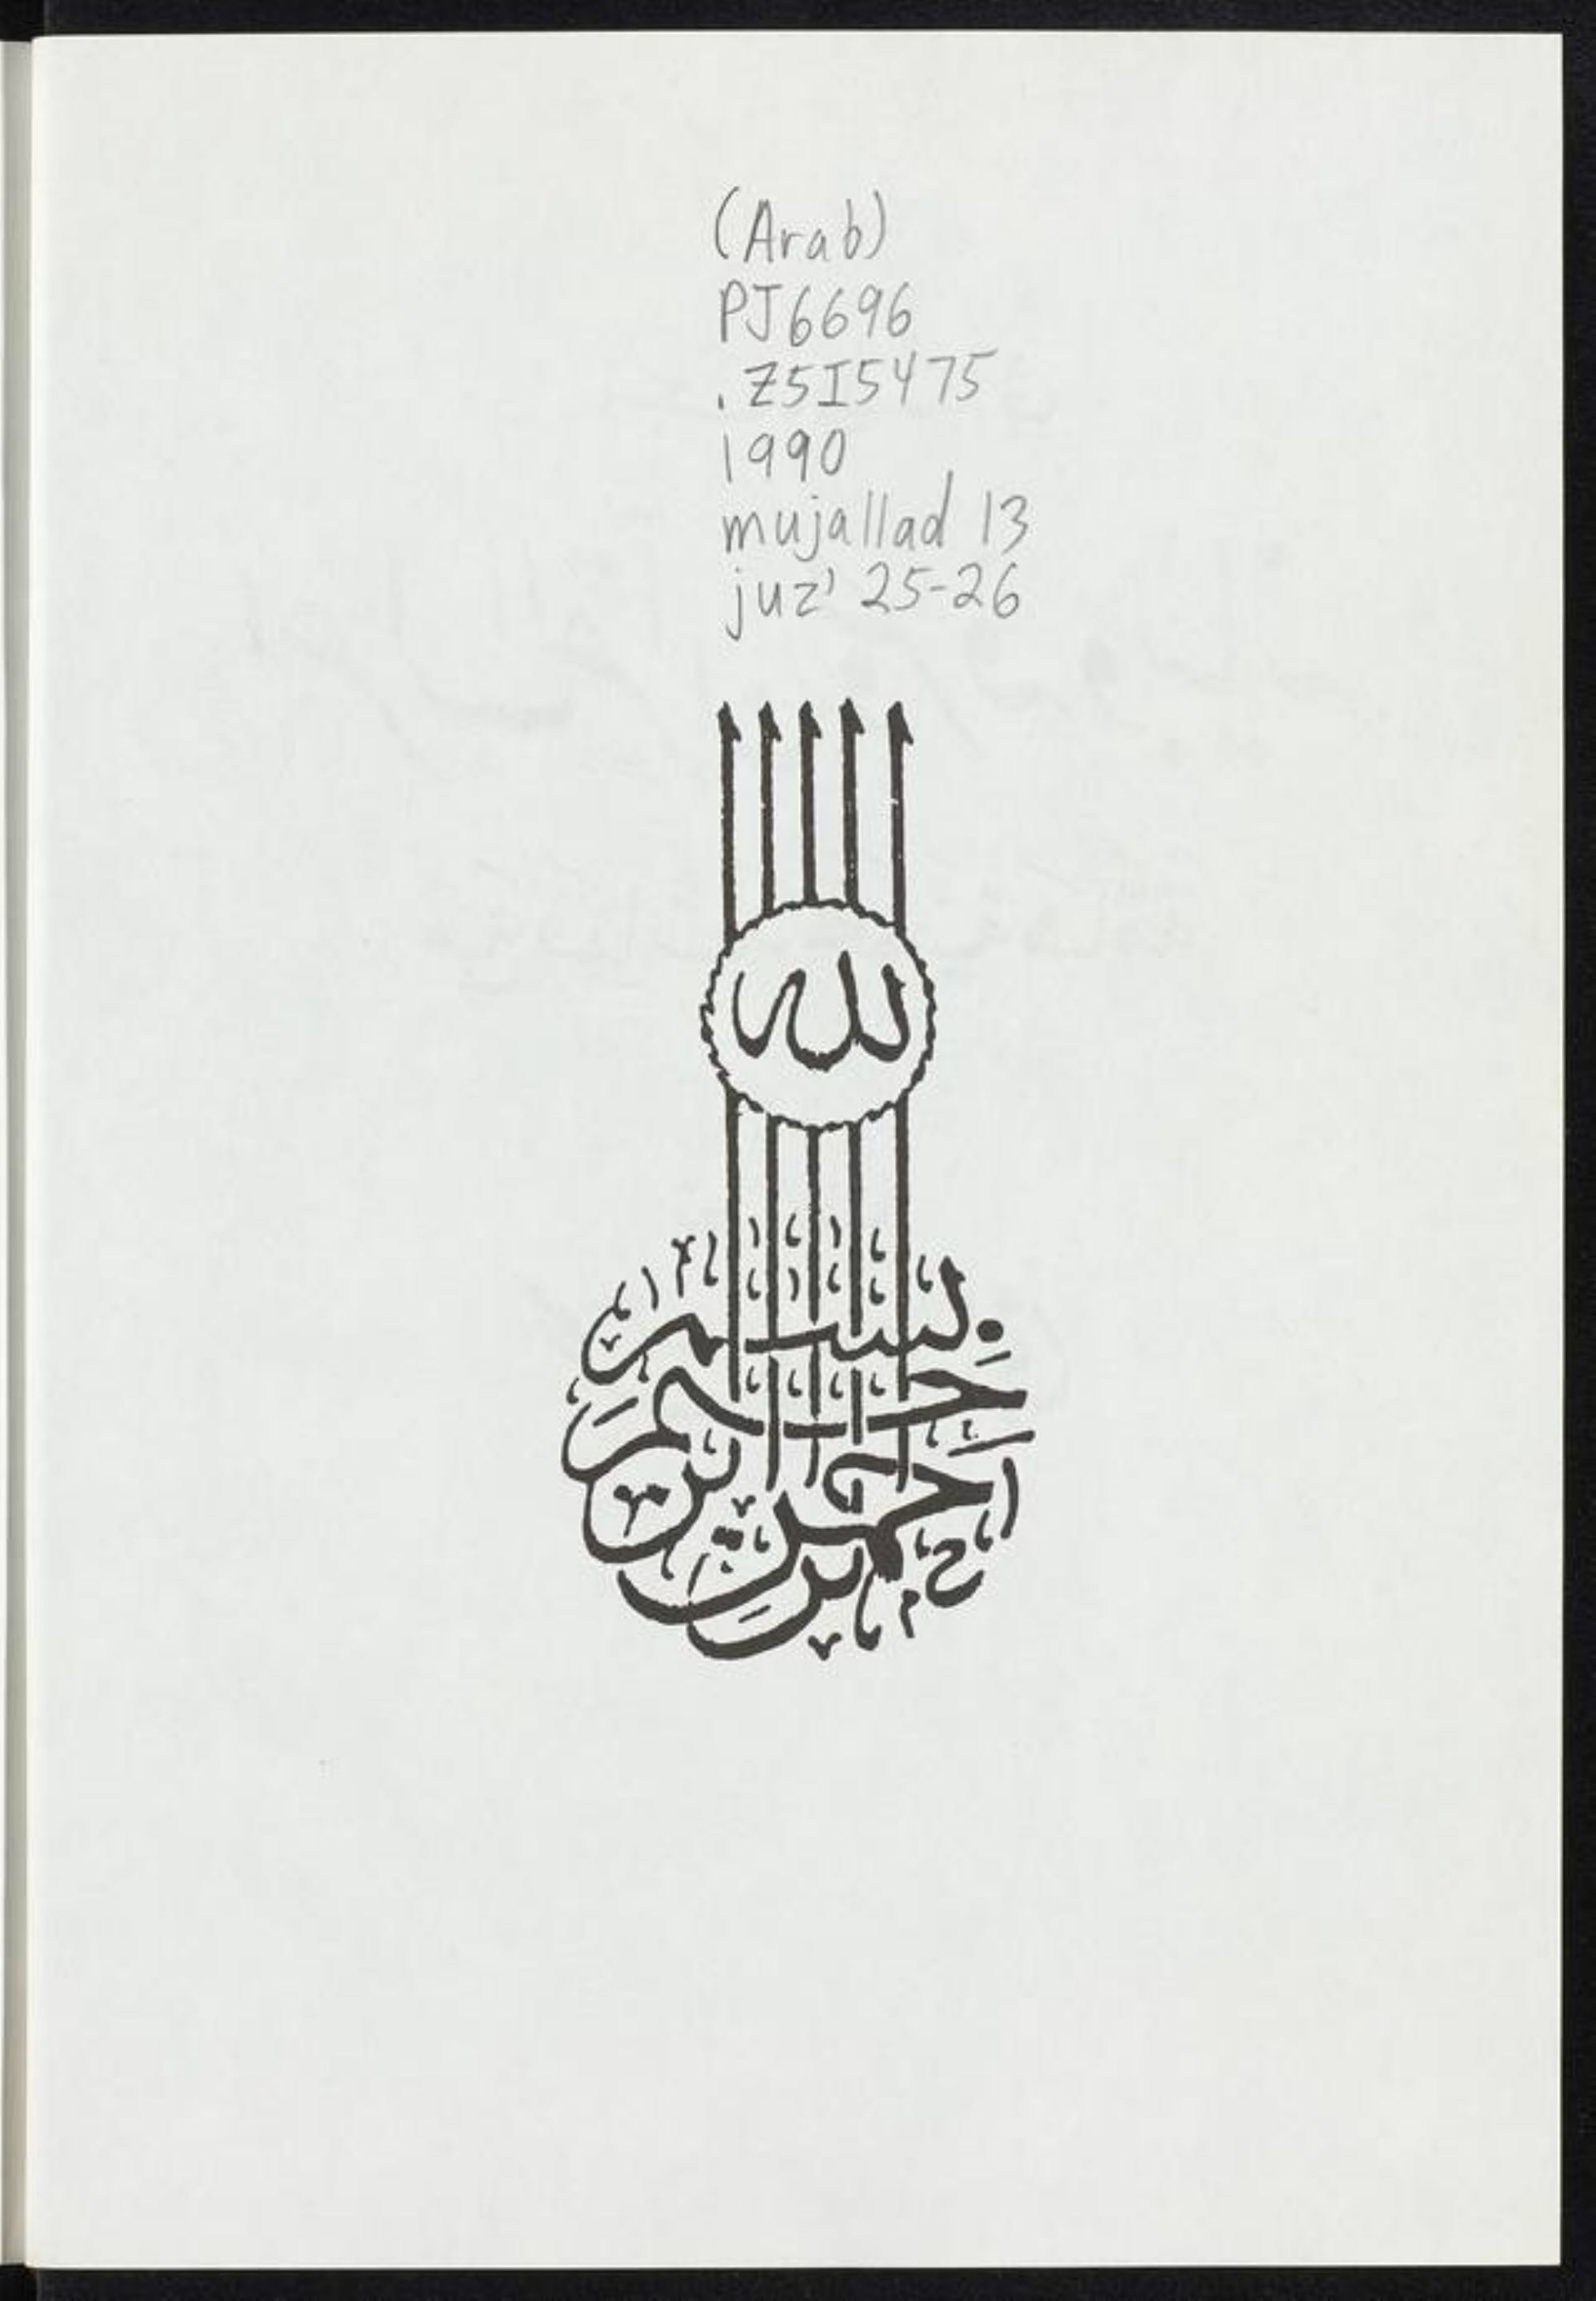 (Arab)
PJ6696
.Z5I5475
1990
mujallad 13
juz' 25-26
بسم الله الرحمن الرحيم